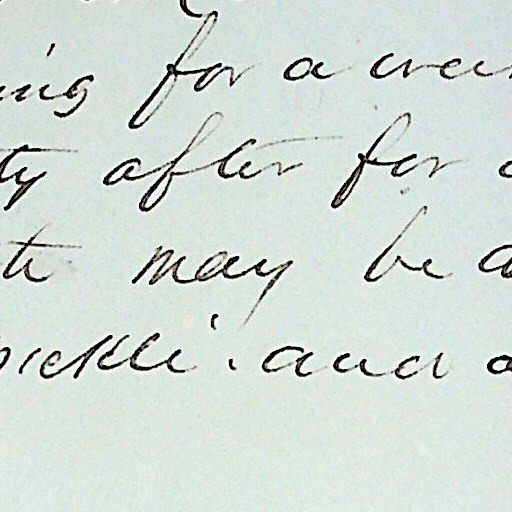 ing for a wee
ty after for a
te may be a
pickle . and a